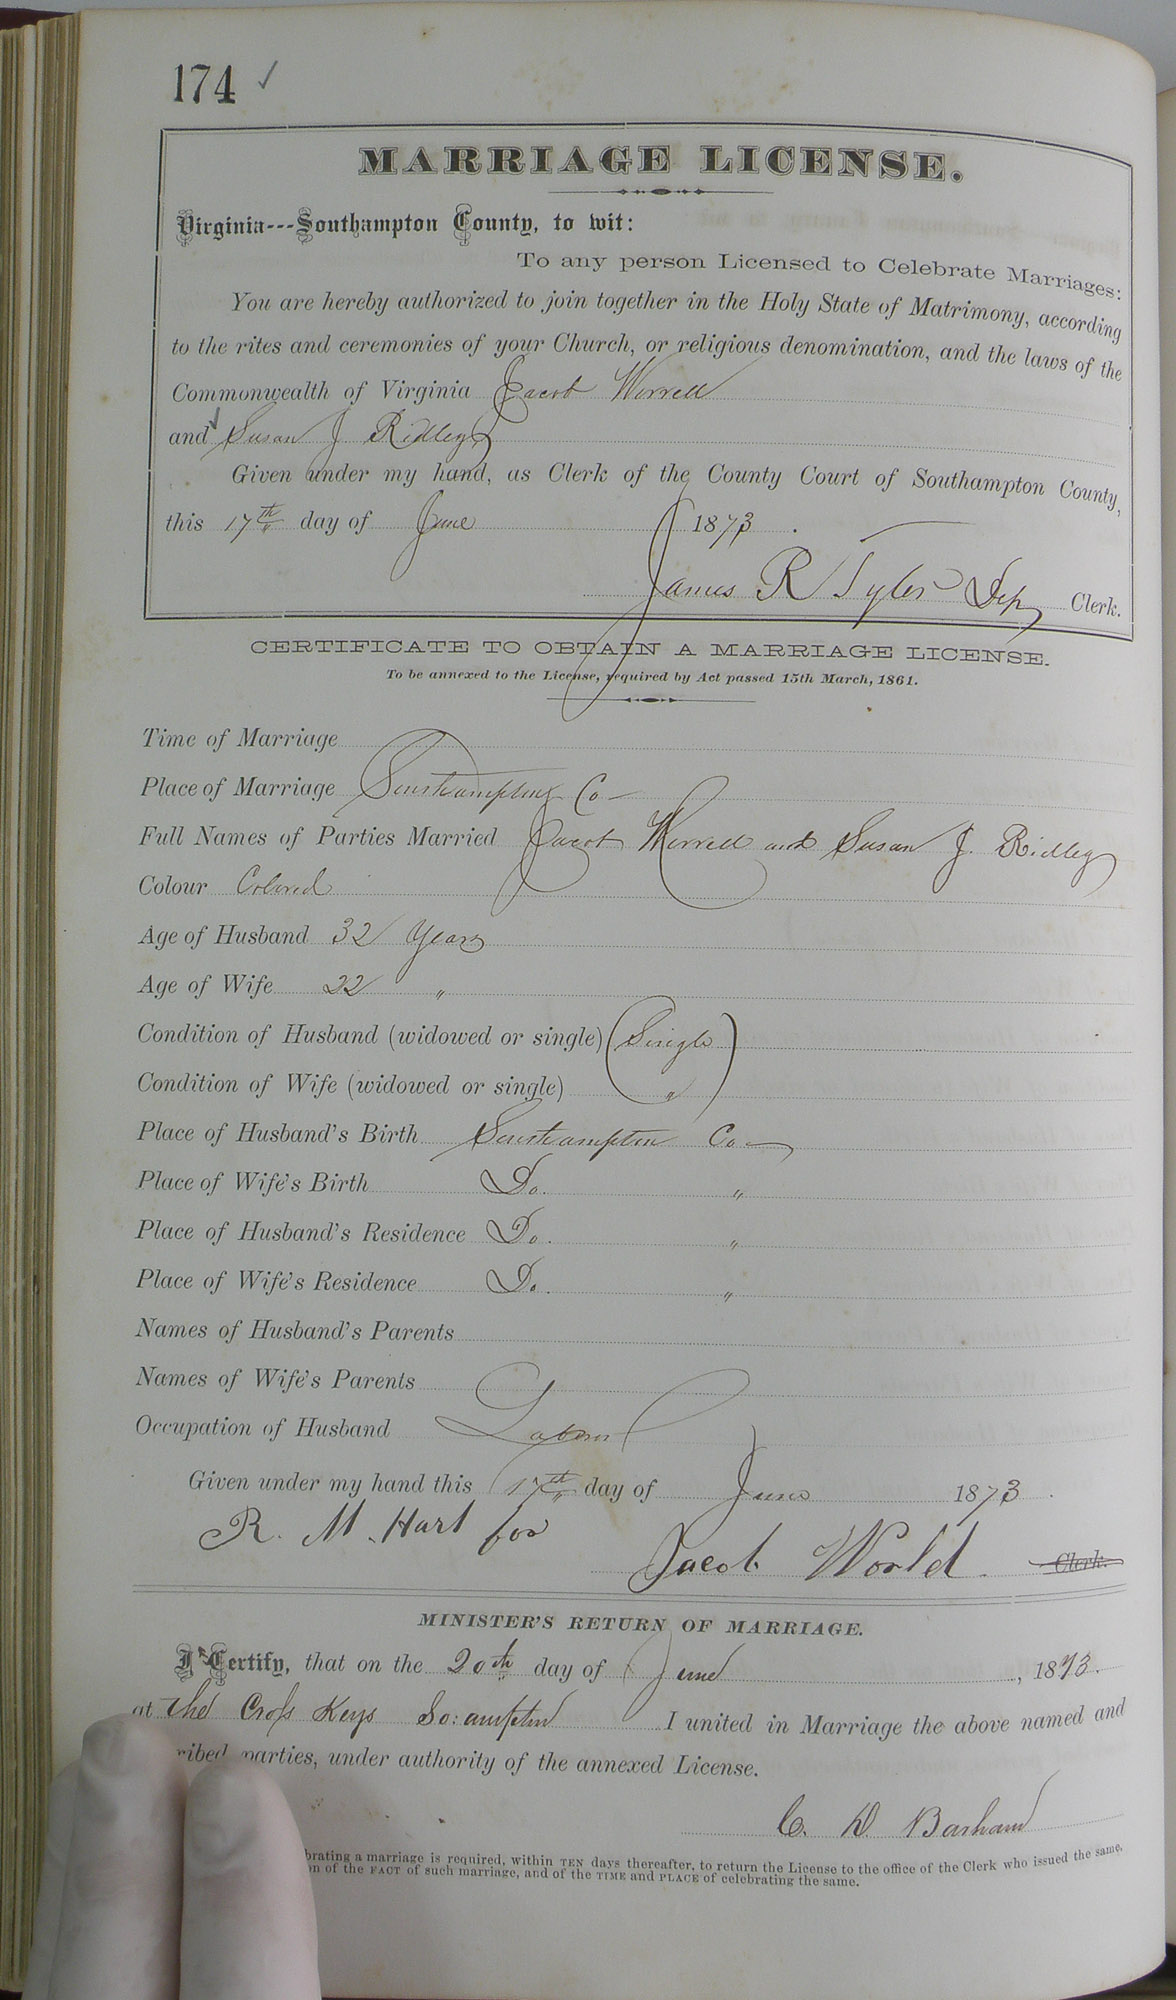 174 ✓
MARRIAGE LICENSE.
Virginia---Southampton County, to wit:
To any person Licensed to Celebrate Marriages:
You are hereby authorized to join together in the Holy State of Matrimony, according
to the rites and ceremonies of your Church, or religious denomination, and the laws of the
Commonwealth of Virginia Jacob Worrell
and Susan J Ridley
Given under my hand, as Clerk of the County Court of Southampton County,
this 17th day of June 1873.
James R Tyler Dep Clerk.
CERTIFICATE TO OBTAIN A MARRIAGE LICENSE.
To be annexed to the License, required by Act passed 15th March, 1861.
Time of Marriage
Place of Marriage Southampton Co
Full Names of Parties Married Jacob Worrell and Susan J. Ridley
Colour Colored
Age of Husband 32 Years
Age of Wife 22 "
Condition of Husband (widowed or single) (Single)
Condition of Wife (widowed or single) "
Place of Husband's Birth Southampton Co
Place of Wife's Birth Do. "
Place of Husband's Residence Do. "
Place of Wife's Residence Do. "
Names of Husband's Parents
Names of Wife's Parents
Occupation of Husband Laborer
Given under my hand this 17th day of June 1873.
R. M. Hart for
Jacob World. Clerk.
MINISTER'S RETURN OF MARRIAGE.
I Certify, that on the 20th day of June, 1873.
at the Cross Keys So:ampton I united in Marriage the above named and
ribed parties, under authority of the annexed License.
C. D Barham
brating a marriage is required, within TEN days thereafter, to return the License to the office of the Clerk who issued the same,
n of the FACT of such marriage, and of the TIME and PLACE of celebrating the same.